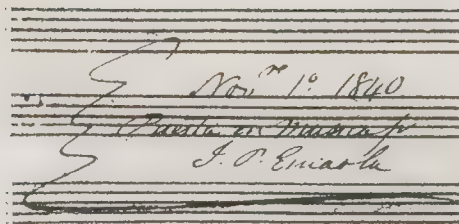 Nov.re 1º 1840
Puesta en musica p
J. P. Esnaola